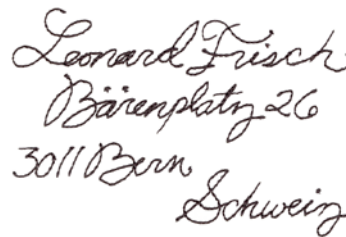 Leonard Frisch
Bärenplatz 26
3011 Bern
Schweiz